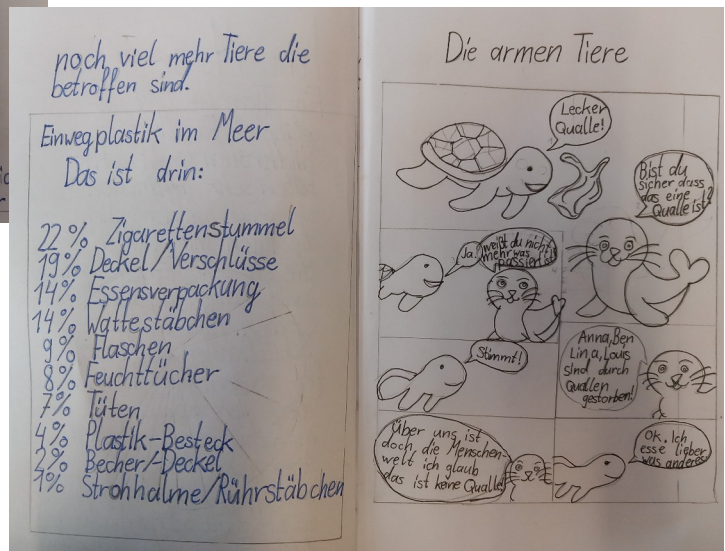 noch viel mehr Tiere die
betroffen sind.
Einwegplastik im Meer
Das ist drin:
22% Zigarettenstummel
19% Deckel/Verschlüsse
14% Essensverpackung
14% Wattestäbchen
9% Flaschen
8% Feuchttücher
7% Tüten
4% Plastik-Besteck
2% Becher/-Deckel
1% Strohhalme/Rührstäbchen
Die armen Tiere
Lecker
Qualle!
Bist du
sicher dass
das eine
Qualle ist?
Ja.
weißt du nicht
mehr was
passiert ist
Stimmt!
Anna, Ben
Lina, Louis
sind durch
Quallen
gestorben!
Über uns ist
doch die Menschen-
welt ich glaub
das ist keine Qualle
Ok. Ich
esse lieber
was anderes.